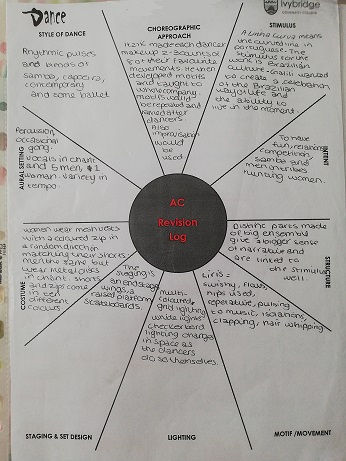 Dance
Ivybridge
COMMUNITY COLLEGE
STYLE OF DANCE
Rhythmic pulses
and bands of
samba, capoeira,
contemporary
and some ballet
CHOREOGRAPHIC
APPROACH
Itzik made each dancer
make up 2 8 counts of
of their favourite
movements. He then
developed motifs
and taught to
whole company.
motifs would
be repeated and
named after
dancers.
Also
improvisation
would
be
used
STIMULUS
A Linha Curva means
the curved line in
portuguese. The
Stimulus for the
work is Brazilian
Culture - Galili wanted
to create a celebration
of the Brazilian
way of life and
the ability to
live in the moment.
AURAL SETTING
Percussion,
occasional
gong.
vocals in chant
and 5 men, # 1
woman. Variety in
tempo
INTENT
To have
fun, relationship,
competition,
samba and
men in tribes
hunting women.
AC
Revision
Log
COSTUME
women wear mesh vests
with a coloured zip in
a random direction
matching their shorts.
men have same but
wear metal discs
in chant. Shorts
and zips come
in ten
different
colours
The
staging is
an end stage
wings, a
raised platform
Skateboards.
STAGING & SET DESIGN
multi-
coloured,
grid lighting
white lights
checkerboard
lighting changes
in space as
the dancers
do so themselves.
LIGHTING
Liris =
swishy, flows,
hips used,
repetitive, pulsing
to music, isolations,
clapping, hair whipping
MOTIF /MOVEMENT
Distinc parts made
of big ensemble
give a bigger sense
of narrative and
are linked to
the stimulus
well.
STRUCTURE